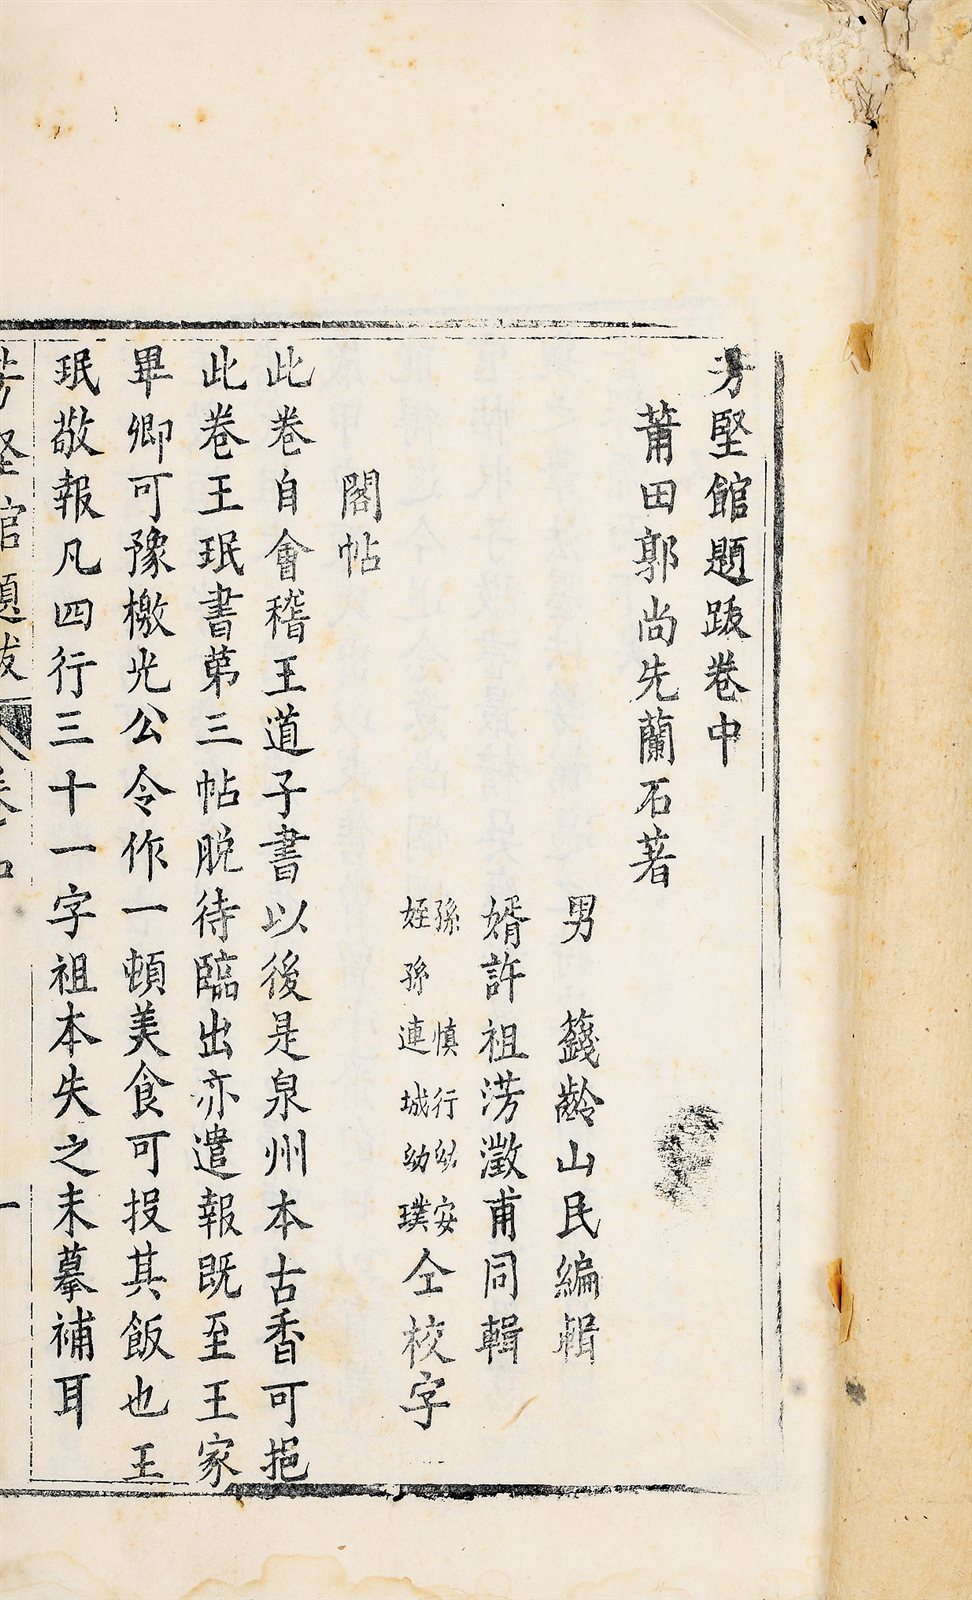 芳堅館題跋卷中
莆田郭尚先蘭石著
男 籛齡山民編輯
婿許祖淓瀓甫同輯
孫 慎行幼安
姪孫連城幼璞 仝校字
閣帖
此卷自會稽王道子書以後是泉州本古香可挹
此卷王珉書第三帖脫待臨出亦遣報既至王家
畢卿可豫檄光公令作一頓美食可投其飯也王
珉敬報凡四行三十一字祖本失之未摹補耳
芳堅館題跋 卷中 一